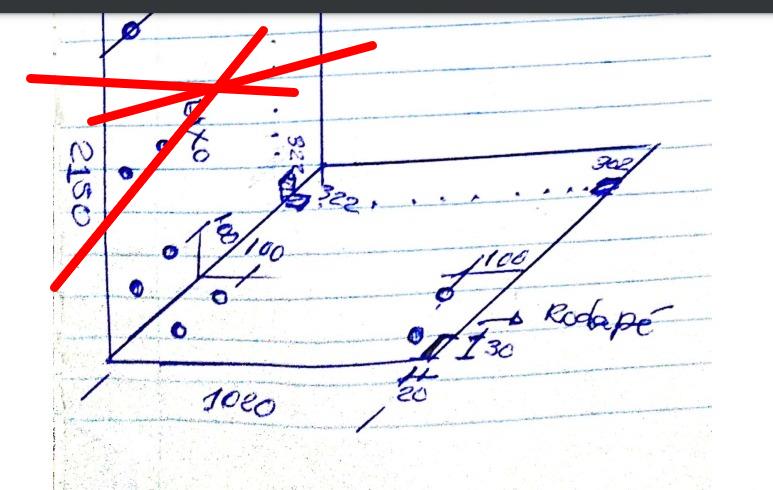 FIXO
2150
322
322
302
100
100
100
Rodapé
30
20
1020